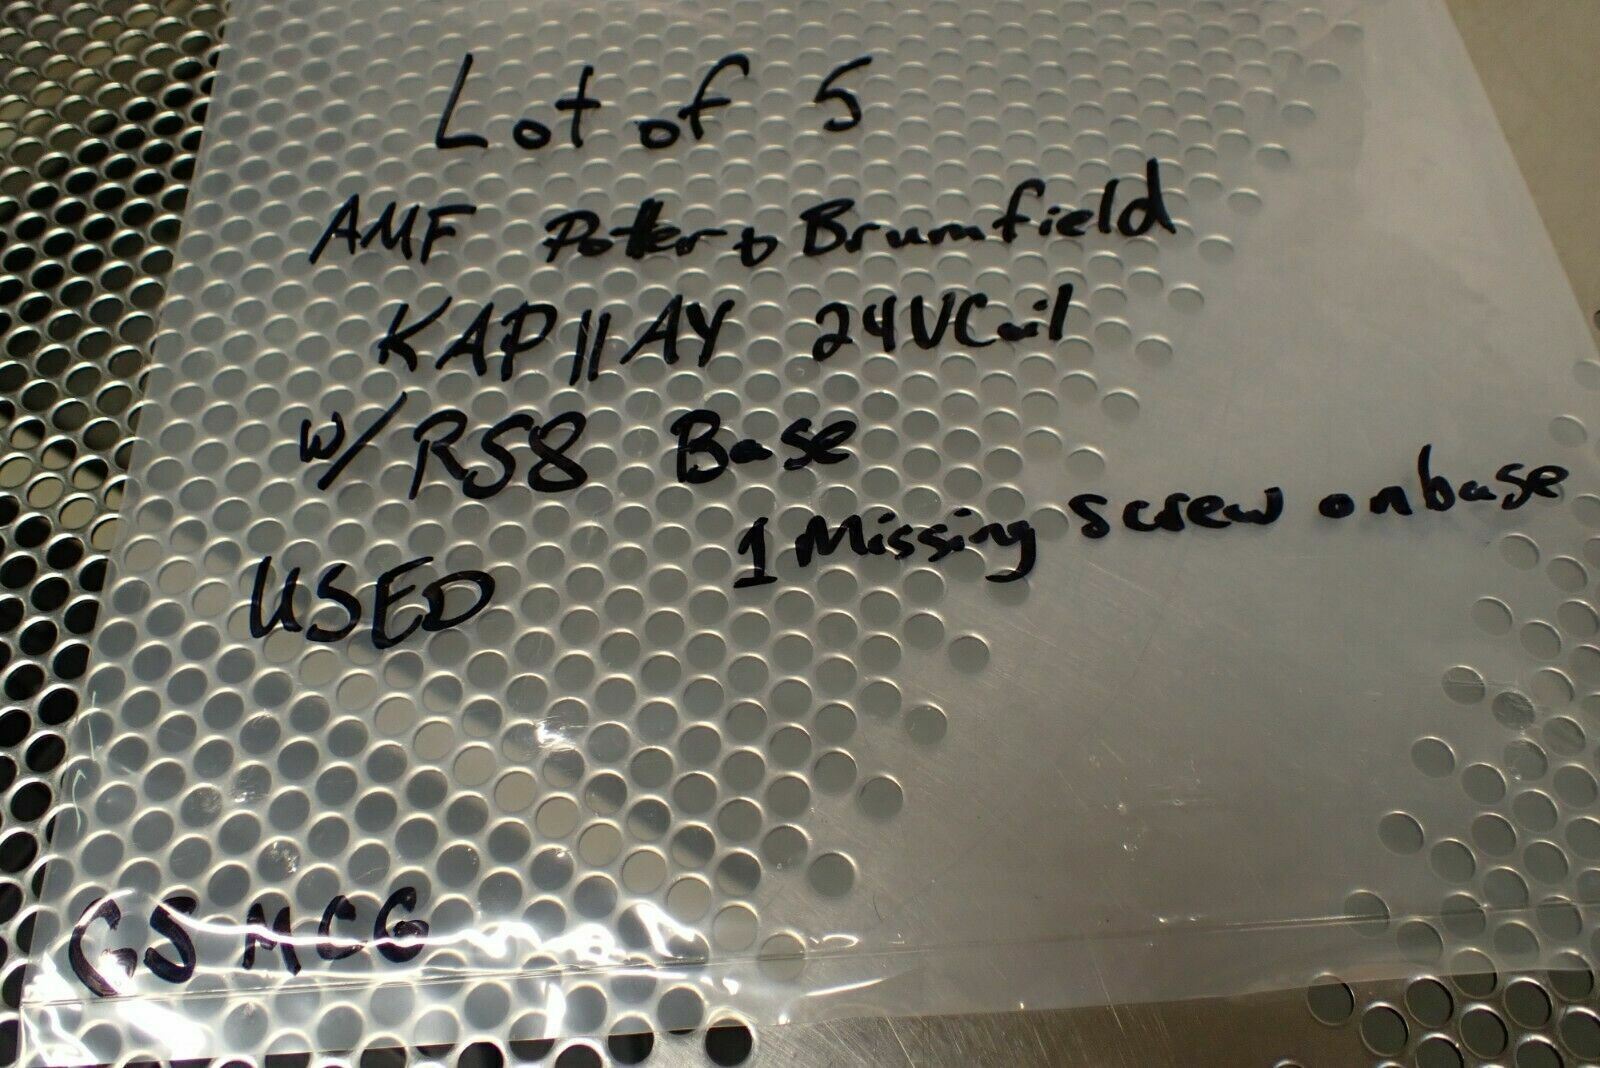 Lot of 5
AMF Potter & Brumfield
KAP11AY 24VCoil
w/ RS8 Base
1 Missing screw on base
USED
GS MCG